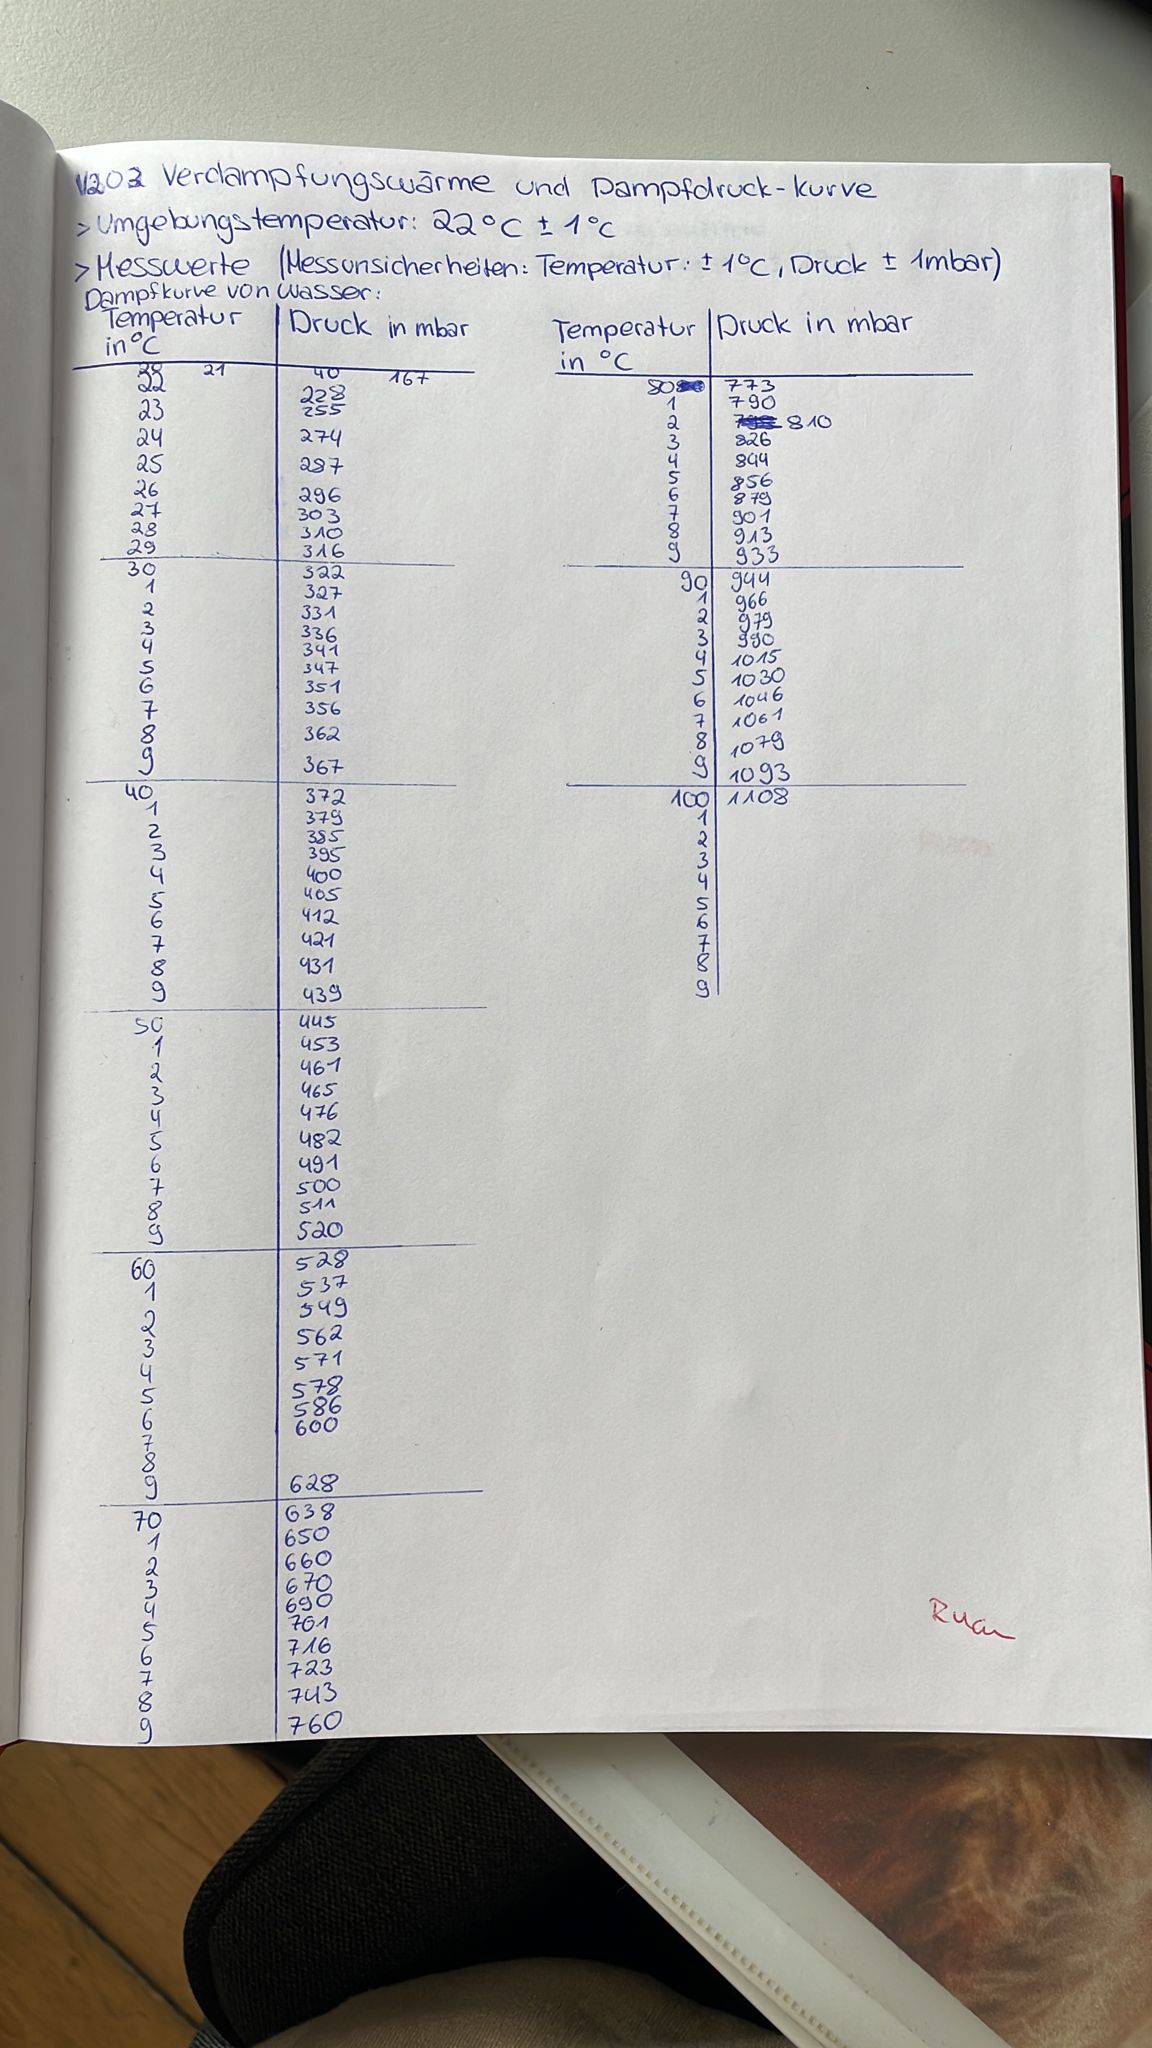 V203 Verdampfungswärme und Dampfdruck-kurve
> Umgebungstemperatur: 22°C ± 1°C
> Messwerte (Messunsicherheiten: Temperatur: ± 1°C, Druck ± 1mbar)
Dampfkurve von Wasser:
Temperatur in °C | Druck in mbar
21 40 167
22 228
23 255
24 274
25 287
26 296
27 303
28 310
29 316
30 322
1 327
2 331
3 336
4 341
5 347
6 351
7 356
8 362
9 367
40 372
1 379
2 385
3 395
4 400
5 405
6 412
7 421
8 431
9 439
50 445
1 453
2 461
3 465
4 476
5 482
6 491
7 500
8 511
9 520
60 528
1 537
2 549
3 562
4 571
5 578
6 586
7 600
8
9 628
70 638
1 650
2 660
3 670
4 690
5 701
6 716
7 723
8 743
9 760
Temperatur in °C | Druck in mbar
80 773
1 790
2 810
3 826
4 844
5 856
6 879
7 901
8 913
9 933
90 944
1 966
2 979
3 990
4 1015
5 1030
6 1046
7 1061
8 1079
9 1093
100 1108
1
2
3
4
5
6
7
8
9